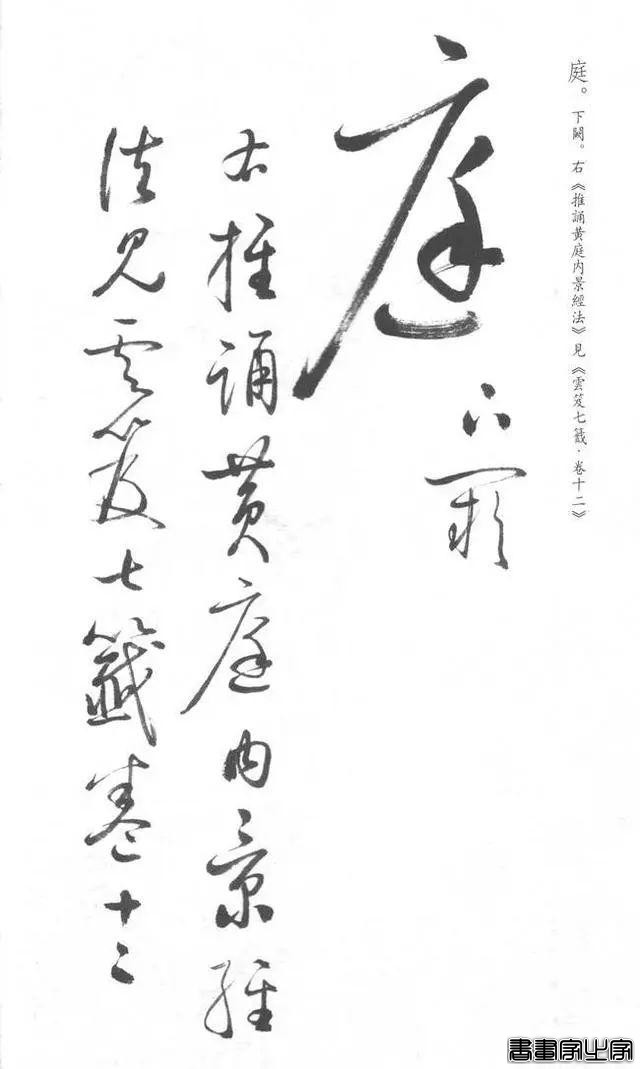 庭。下闕。右《推誦黃庭內景經法》見《雲笈七籤·卷十二》
庭
下闕
右推誦黃庭內景經
法見雲笈七籤卷十二
書畫家必字